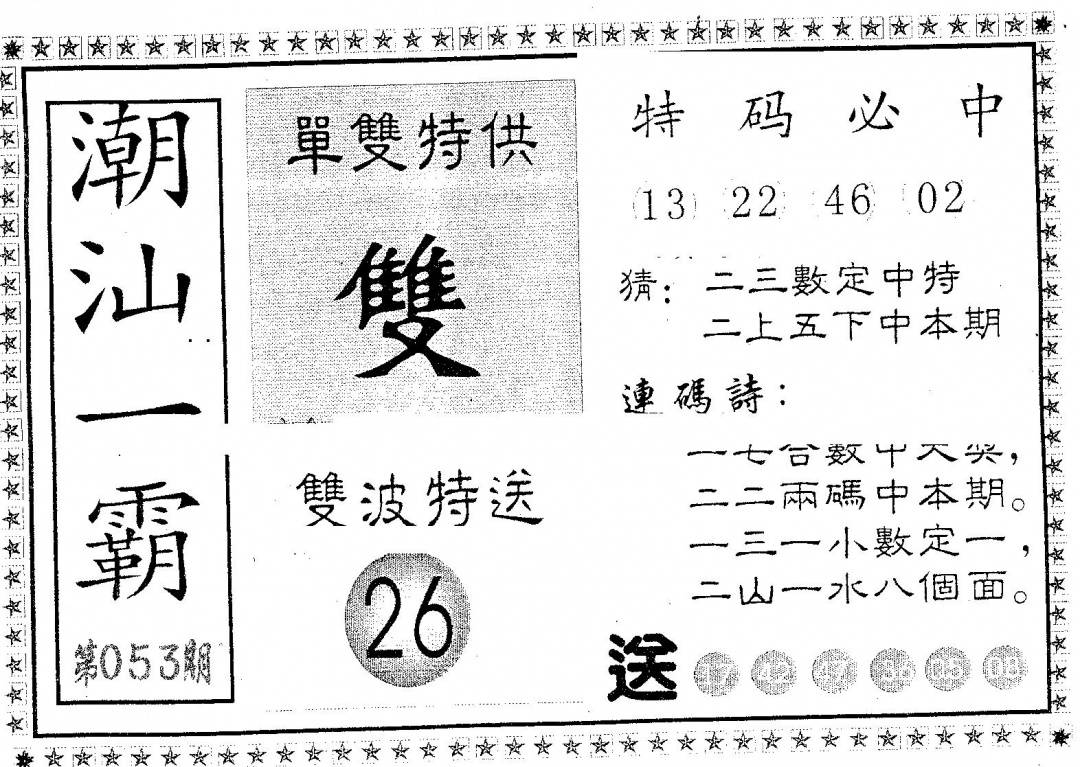 潮汕一霸
第053期
單雙特供
雙
雙波特送
26
特码必中
13 22 46 02
猜：二三數定中特
二上五下中本期
連碼詩：
一七合數中大獎，
二二兩碼中本期。
一三一小數定一，
二山一水八個面。
送 42 47 36 05 08